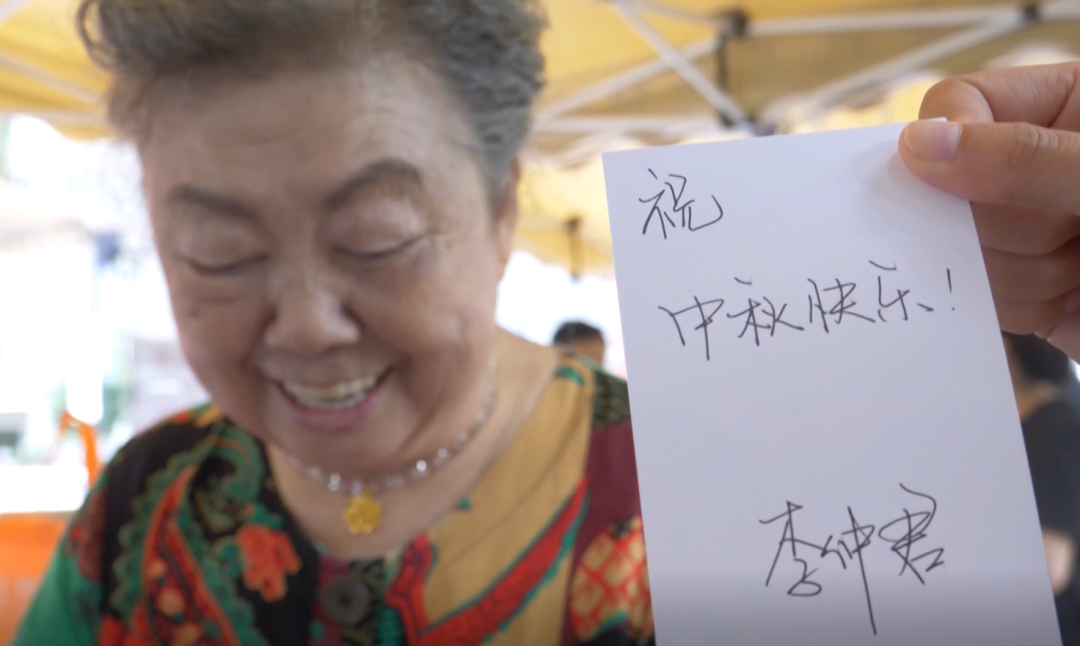 祝
中秋快乐!
李仲君